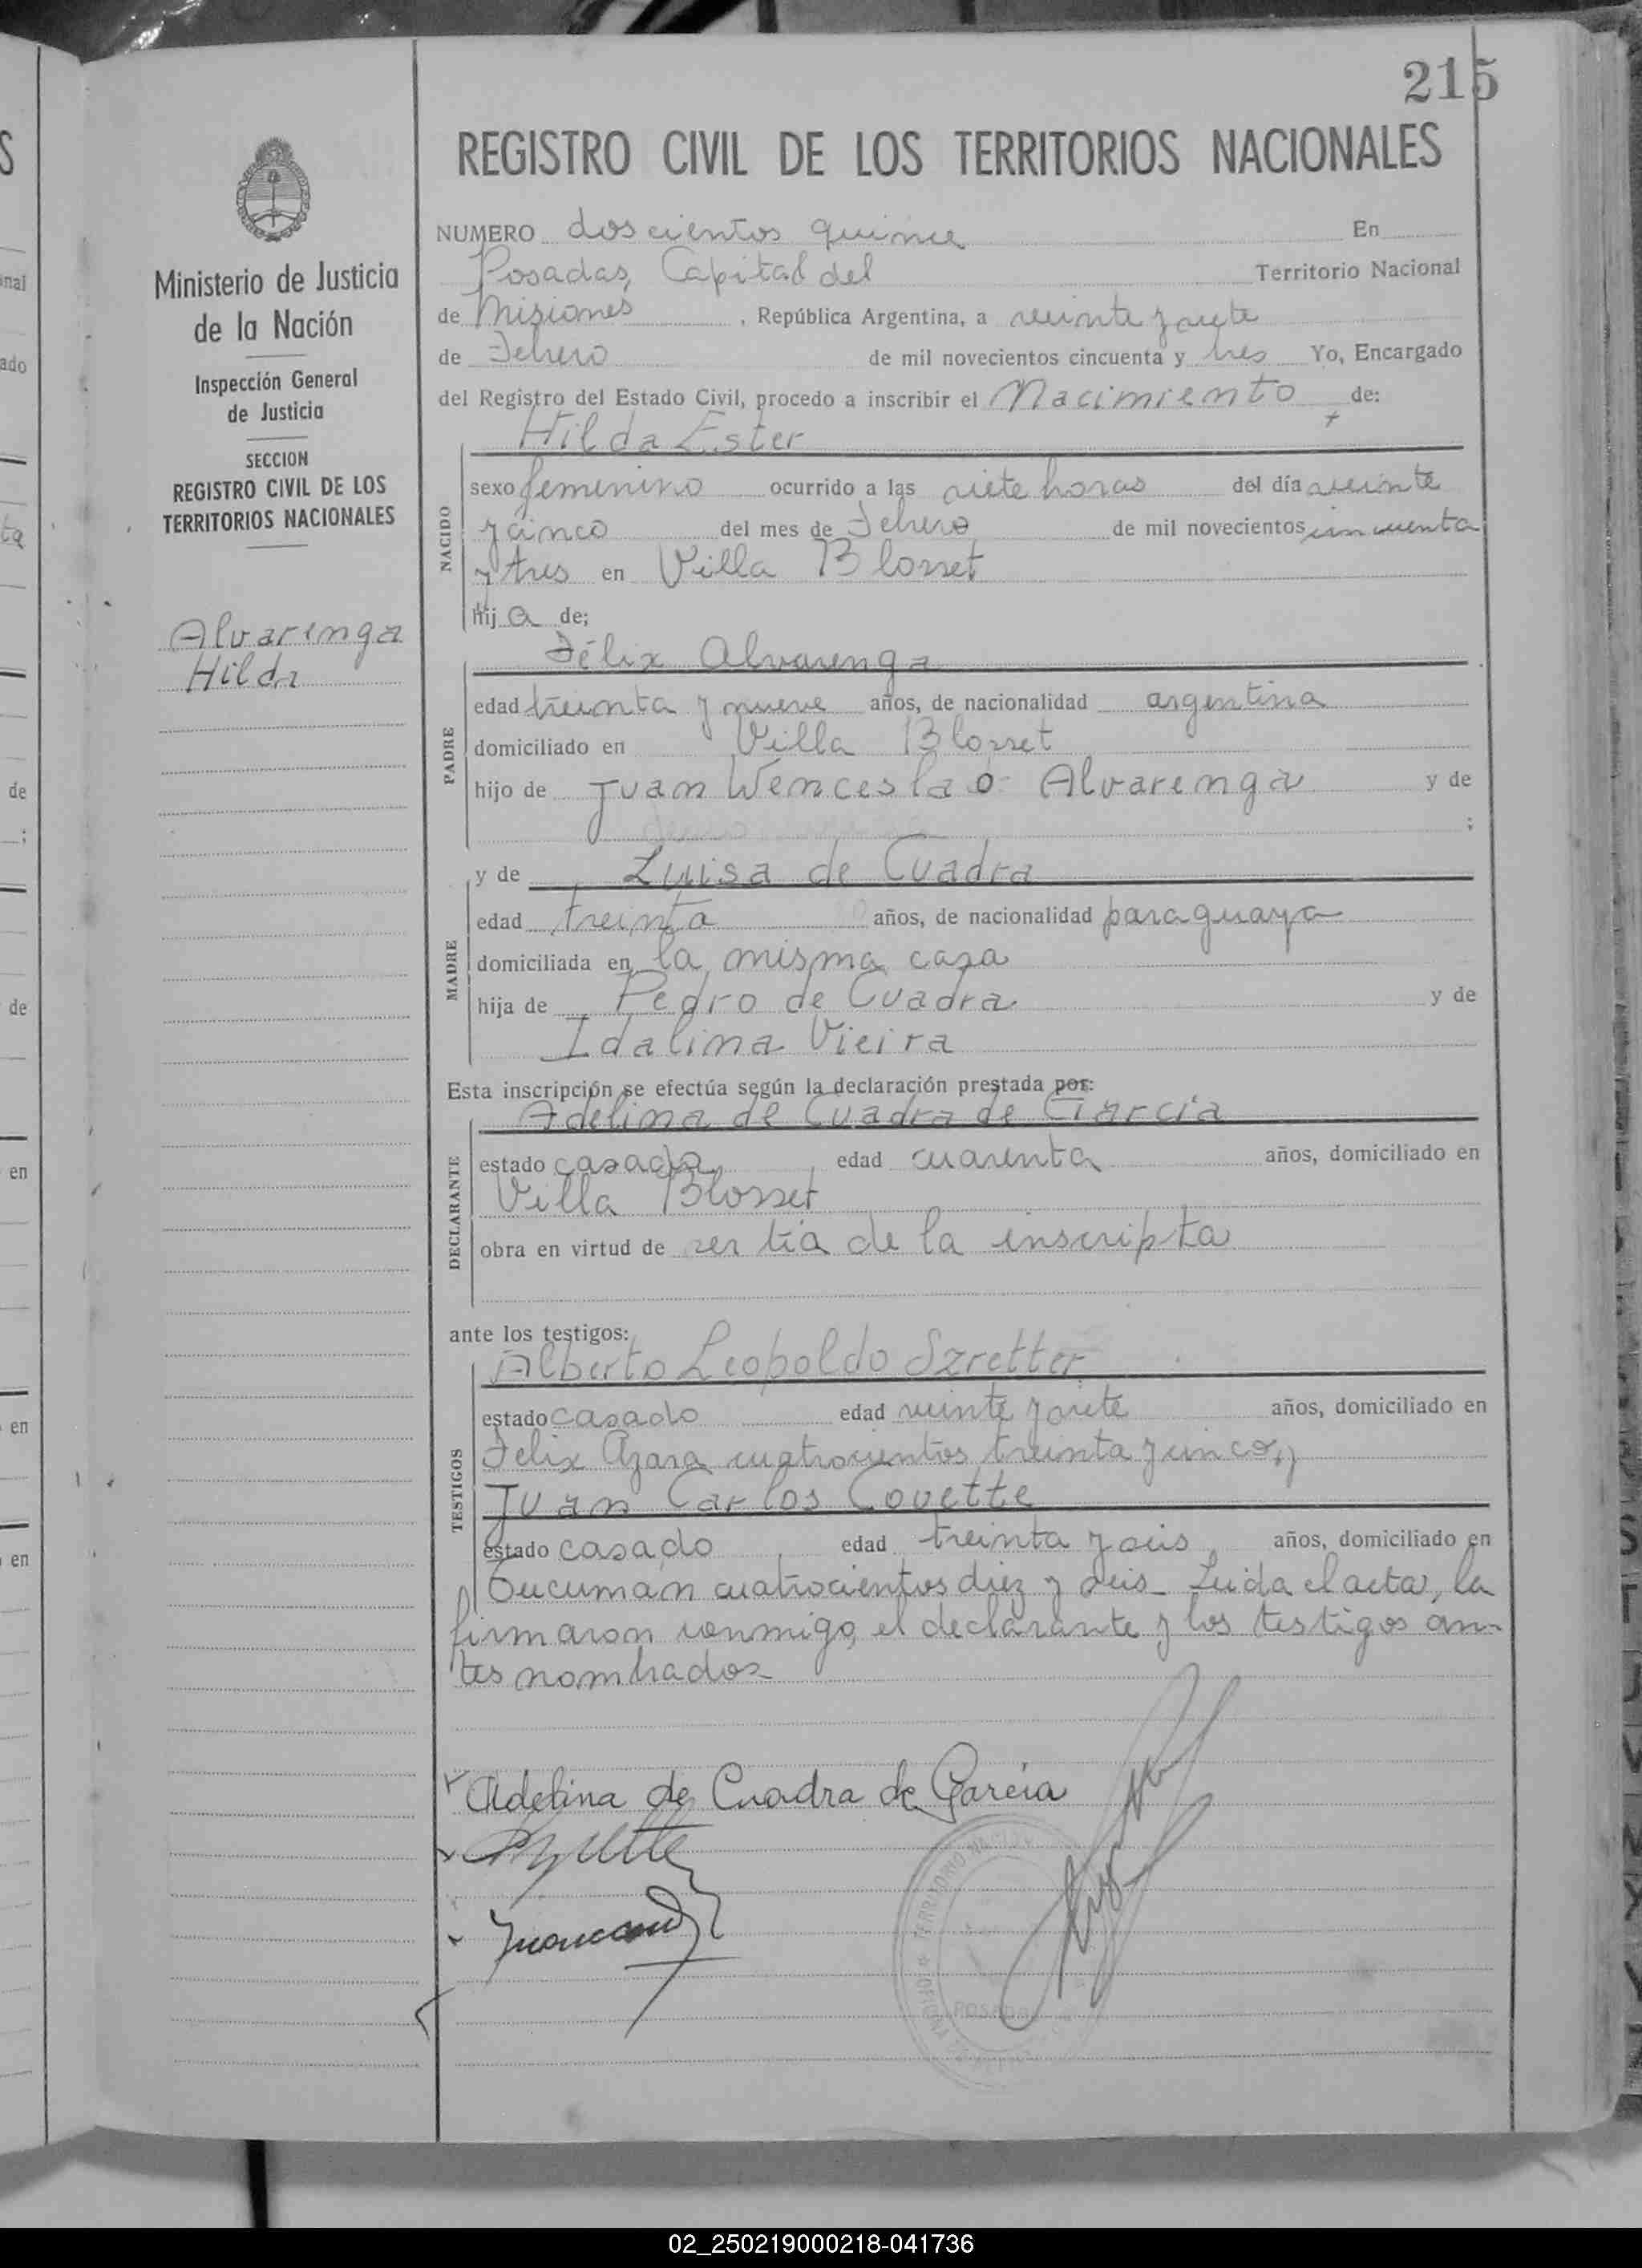 215
REGISTRO CIVIL DE LOS TERRITORIOS NACIONALES
Ministerio de Justicia
de la Nación
Inspección General
de Justicia
SECCION
REGISTRO CIVIL DE LOS
TERRITORIOS NACIONALES
Alvarenga
Hilda
NUMERO doscientos quince En
Posadas, Capital del Territorio Nacional
de Misiones, República Argentina, a veinte y siete
de Febrero de mil novecientos cincuenta y tres Yo, Encargado
del Registro del Estado Civil, procedo a inscribir el Nacimiento de:
Hilda Ester
NACIDO
sexo femenino ocurrido a las siete horas del día veinte
y cinco del mes de Febrero de mil novecientos cincuenta
y tres en Villa Blosset
hija de;
Félix Alvarenga
PADRE
edad treinta y nueve años, de nacionalidad argentina
domiciliado en Villa Blosset
hijo de Juan Wenceslao Alvarenga y de
;
y de Luisa de Cuadra
MADRE
edad treinta años, de nacionalidad paraguaya
domiciliada en la misma casa
hija de Pedro de Cuadra y de
Idalina Vieira
Esta inscripción se efectúa según la declaración prestada por:
Adelina de Cuadra de Garcia
DECLARANTE
estado casada, edad cuarenta años, domiciliado en
Villa Blosset
obra en virtud de ser tía de la inscripta
ante los testigos:
Alberto Leopoldo Szretter
TESTIGOS
estado casado edad veinte y siete años, domiciliado en
Felix Azara cuatrocientos treinta y cinco, y
Juan Carlos Covette
estado casado edad treinta y seis años, domiciliado en
Tucumán cuatrocientos diez y seis_ Leida el acta, la
firmaron conmigo, el declarante y los testigos an-
tes nombrados
Adelina de Cuadra de Garcia
TERRITORIO NACIONAL
POSADAS
nal
ado
ta
de
;
de
en
en
en
02_250219000218-041736